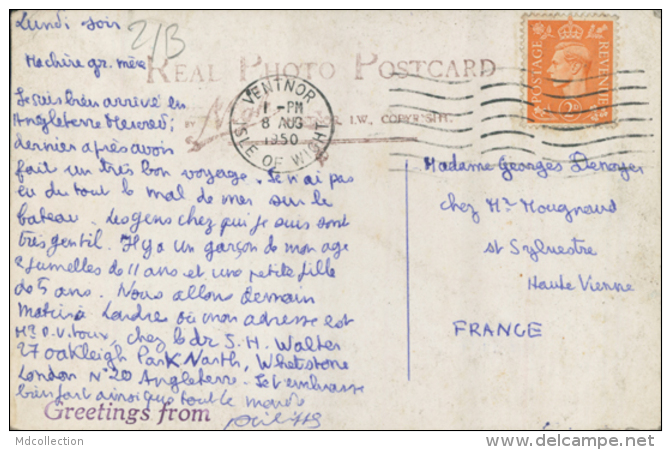 Lundi soir
2/B
Ma chère gr. mère
REAL PHOTO POSTCARD
I.W., COPYRIGHT.
Je suis bien arrivé en
Angleterre Mercredi
dernier après avoir
fait un très bon voyage. Je n'ai pas
eu du tout le mal de mer sur le
bateau. Les gens chez qui je suis sont
très gentil. Il y a un garçon de mon age
2 jumelles de 11 ans et une petite fille
de 5 ans. Nous allons demain
à Londre où mon adresse est
chez le dr S. H. Walter
27 Oakleigh Park North, Whetstone
London N°20 Angleterre. Je t'embrasse
bien fort ainsi que tout le monde
Greetings from
VENTNOR
1 - PM
8 AUG
1950
ISLE OF WIGHT
POSTAGE
REVENUE
2D
Madame Georges Denoyer
chez Mr Mougnaud
st Sylvestre
Haute Vienne
FRANCE
Mdcollection
www.delcampe.net